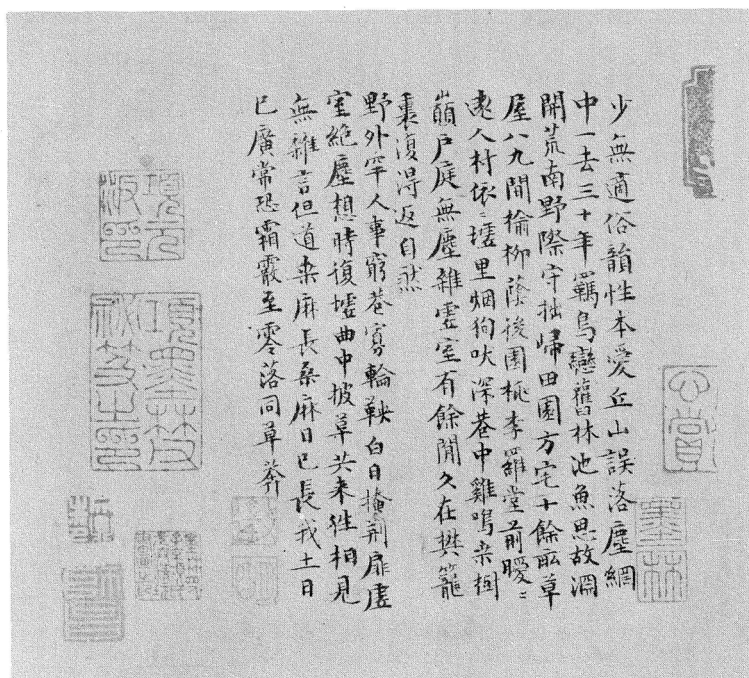 少無適俗韻性本愛丘山誤落塵網
中一去三十年羈鳥戀舊林池魚思故淵
開荒南野際守拙歸田園方宅十餘畝草
屋八九間榆柳蔭後園桃李羅堂前曖〻
遠人村依〻墟里烟狗吠深巷中雞鳴桒樹
巔戶庭無塵雜虛室有餘閒久在樊籠
裏復得返自然
野外罕人事窮巷寡輪鞅白日掩荆扉虛
室絕塵想時復墟曲中披草共来往相見
無雜言但道桒麻長桑麻日已長我土日
已廣常恐霜霰至零落同草莽
公賞
墨林
項元汴印
項墨林父祕笈之印